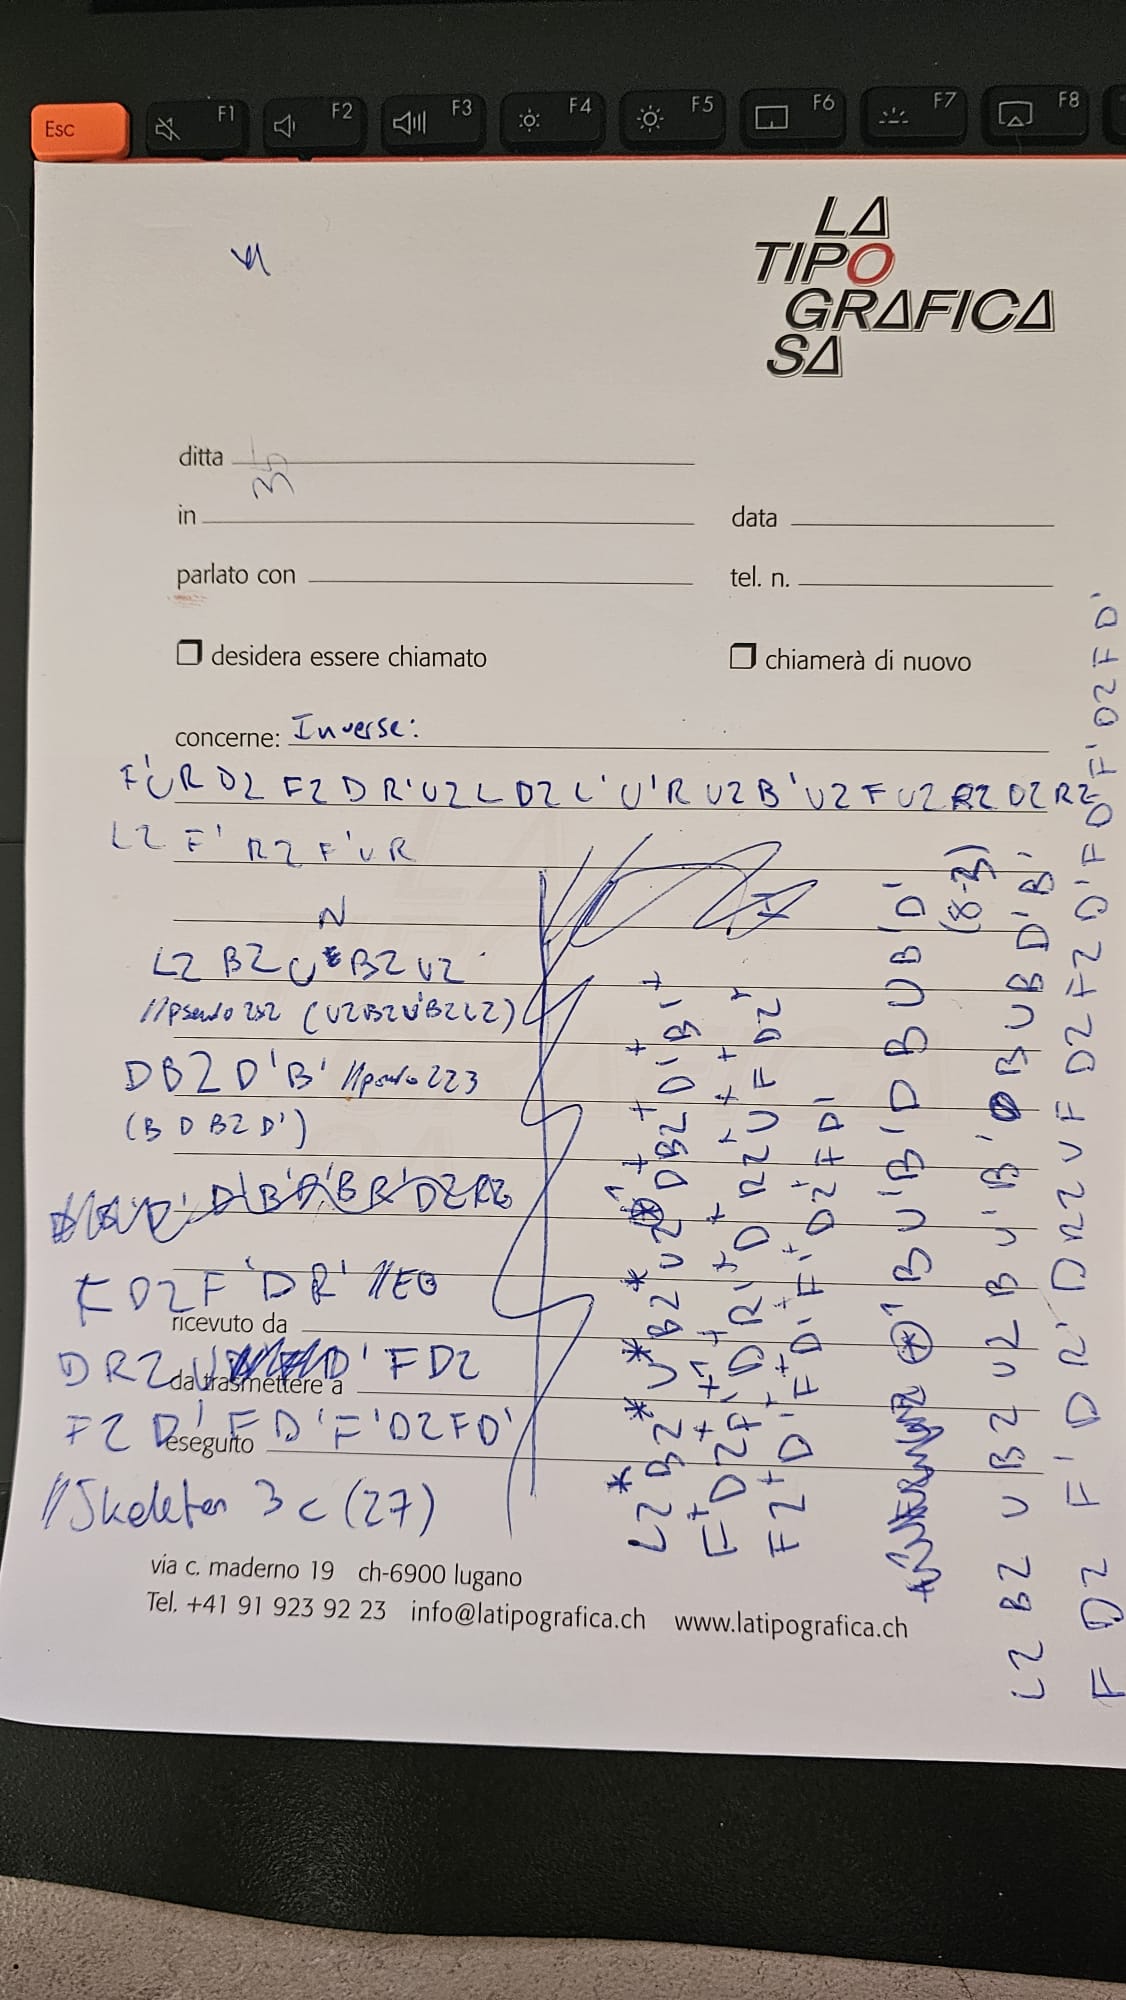 Esc F1 F2 F3 F4 F5 F6 F7 F8
LA
TIPO
GRAFICA
SA
ditta
in
data
parlato con
tel. n.
desidera essere chiamato
chiamerà di nuovo
concerne: Inverse:
F' U R D2 F2 D R' U2 L D2 L' U' R U2 B' U2 F U2 R2 D2 R2
L2 F' R2 F' U R
N
L2 B2 U B2 U2
//pseudo 2x2 (U2B2U'B2L2)
D B2 D' B' //pseudo 223
(B D B2 D')
F D2 F' D R' //EO
ricevuto da
D R2 U D' F D2
da trasmettere a
F2 D' F D' F' D2 F D'
eseguito
//Skeleton 3c (27)
via c. maderno 19 ch-6900 lugano
Tel. +41 91 923 92 23 info@latipografica.ch www.latipografica.ch
L2 B2 U B2 U2 D B2 D' B'
F D2 F' D R' D R2 U F D2
F2 D' F D' F' D2 F D'
B U' B' D B U B' D'
(8-3)
L2 B2 U B2 U2 B U' B' D B U B D' B'
F D2 F' D R' D R2 U F D2 F2 D' F D' F' D2 F D'